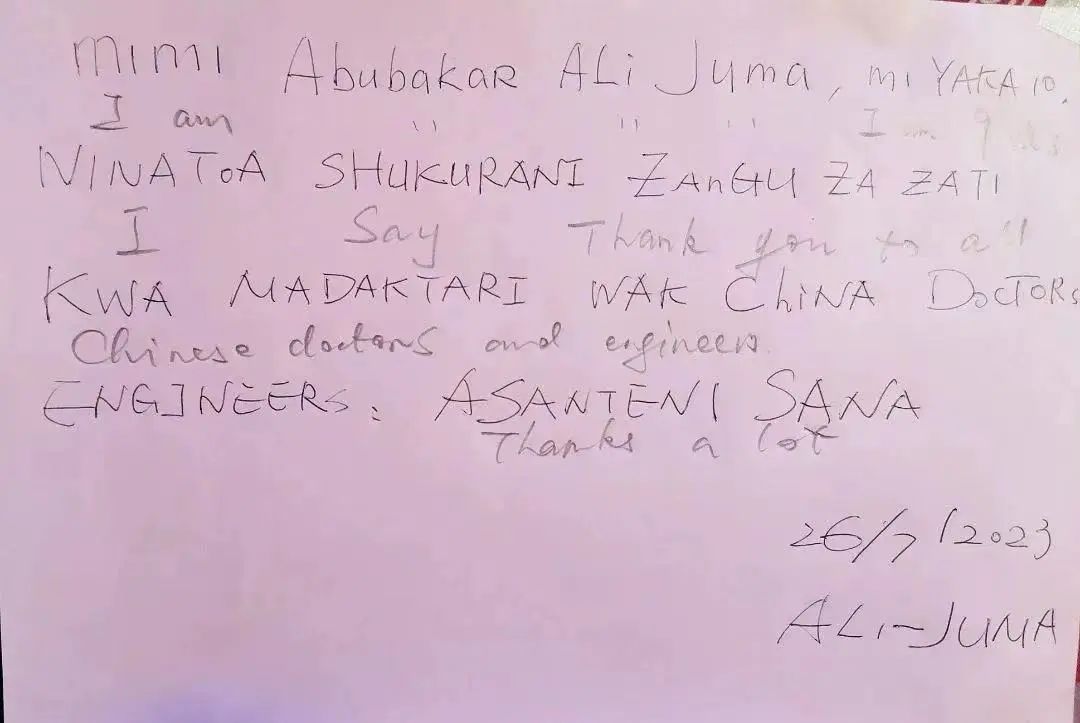 MIMI Abubakar ALi Juma, mi YAKA 10.
I am " " " I am 9
NINATOA SHUKURANI ZANGU ZA ZATI
I Say Thank you to all
KWA MADAKTARI WAK CHiNA DOCTORS
Chinese doctors and engineers.
ENGINEERS: ASANTENI SANA
Thanks a lot
26/7/2023
ALI-JUMA